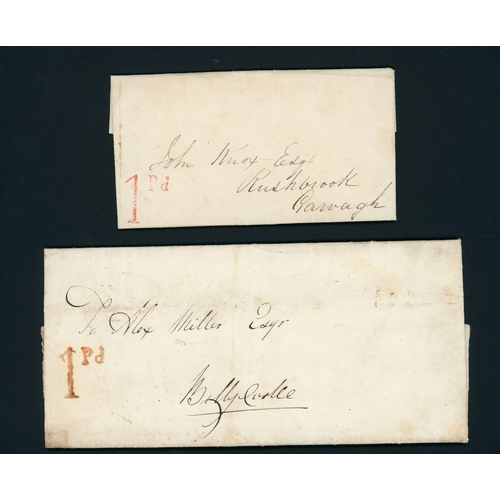 John Knox Esqr
Rushbrook
Garvagh
1 Pd
To Alex Miller Esqr
1 Pd
Ballycastle